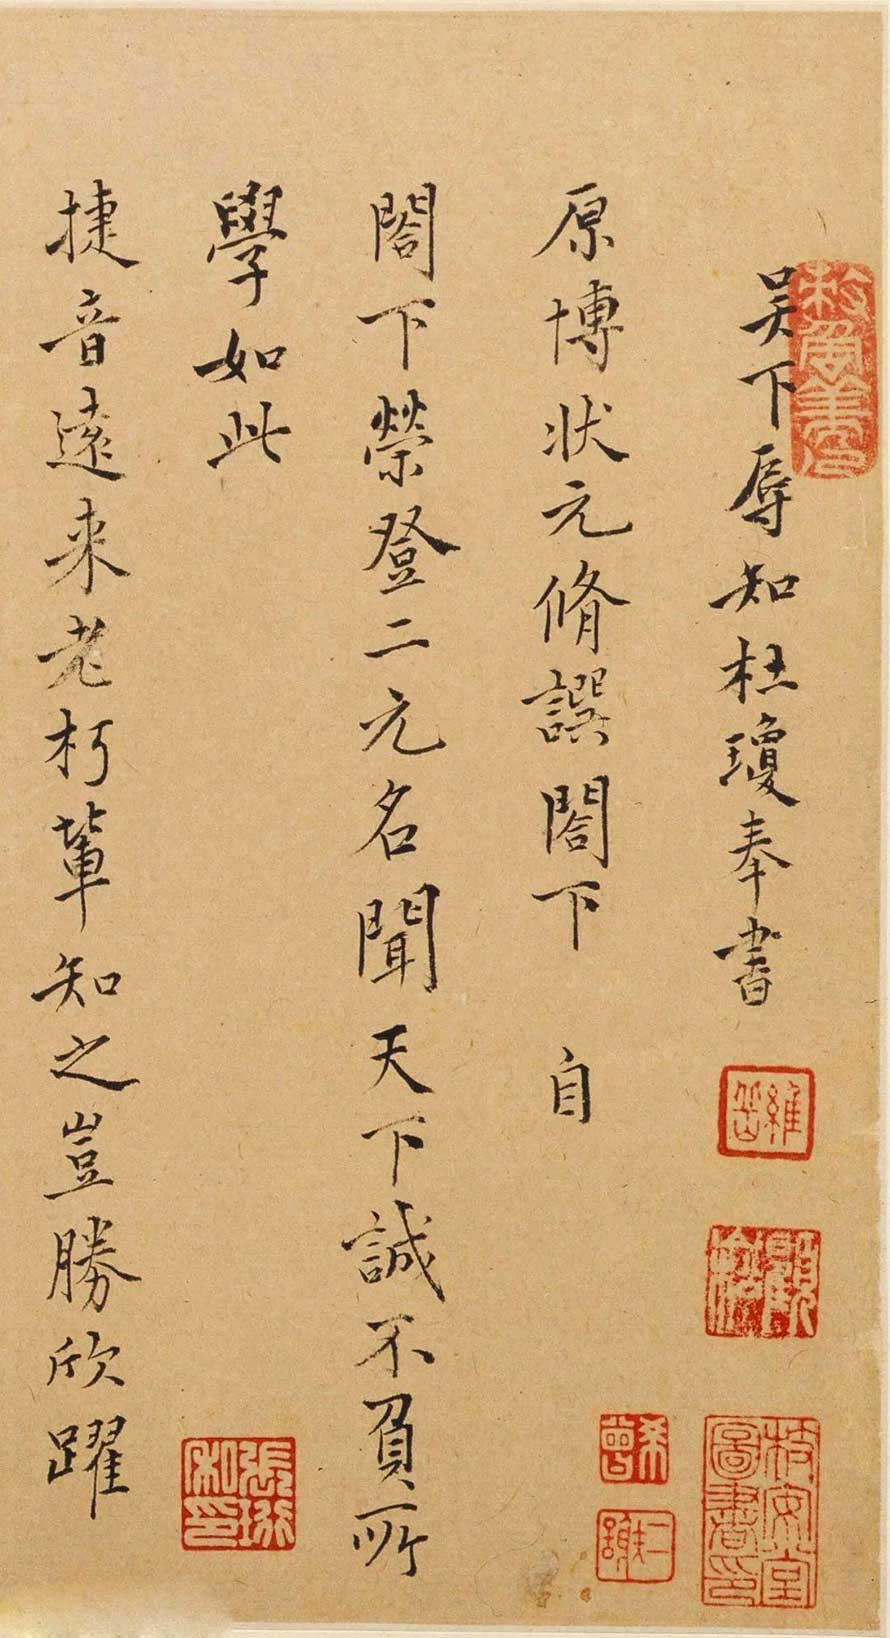 吴下辱知杜瓊奉書
原博状元脩譔閤下 自
閤下榮登二元名聞天下誠不負所
學如此
捷音遠来老朽軰知之豈勝欣躍
張珩
私印